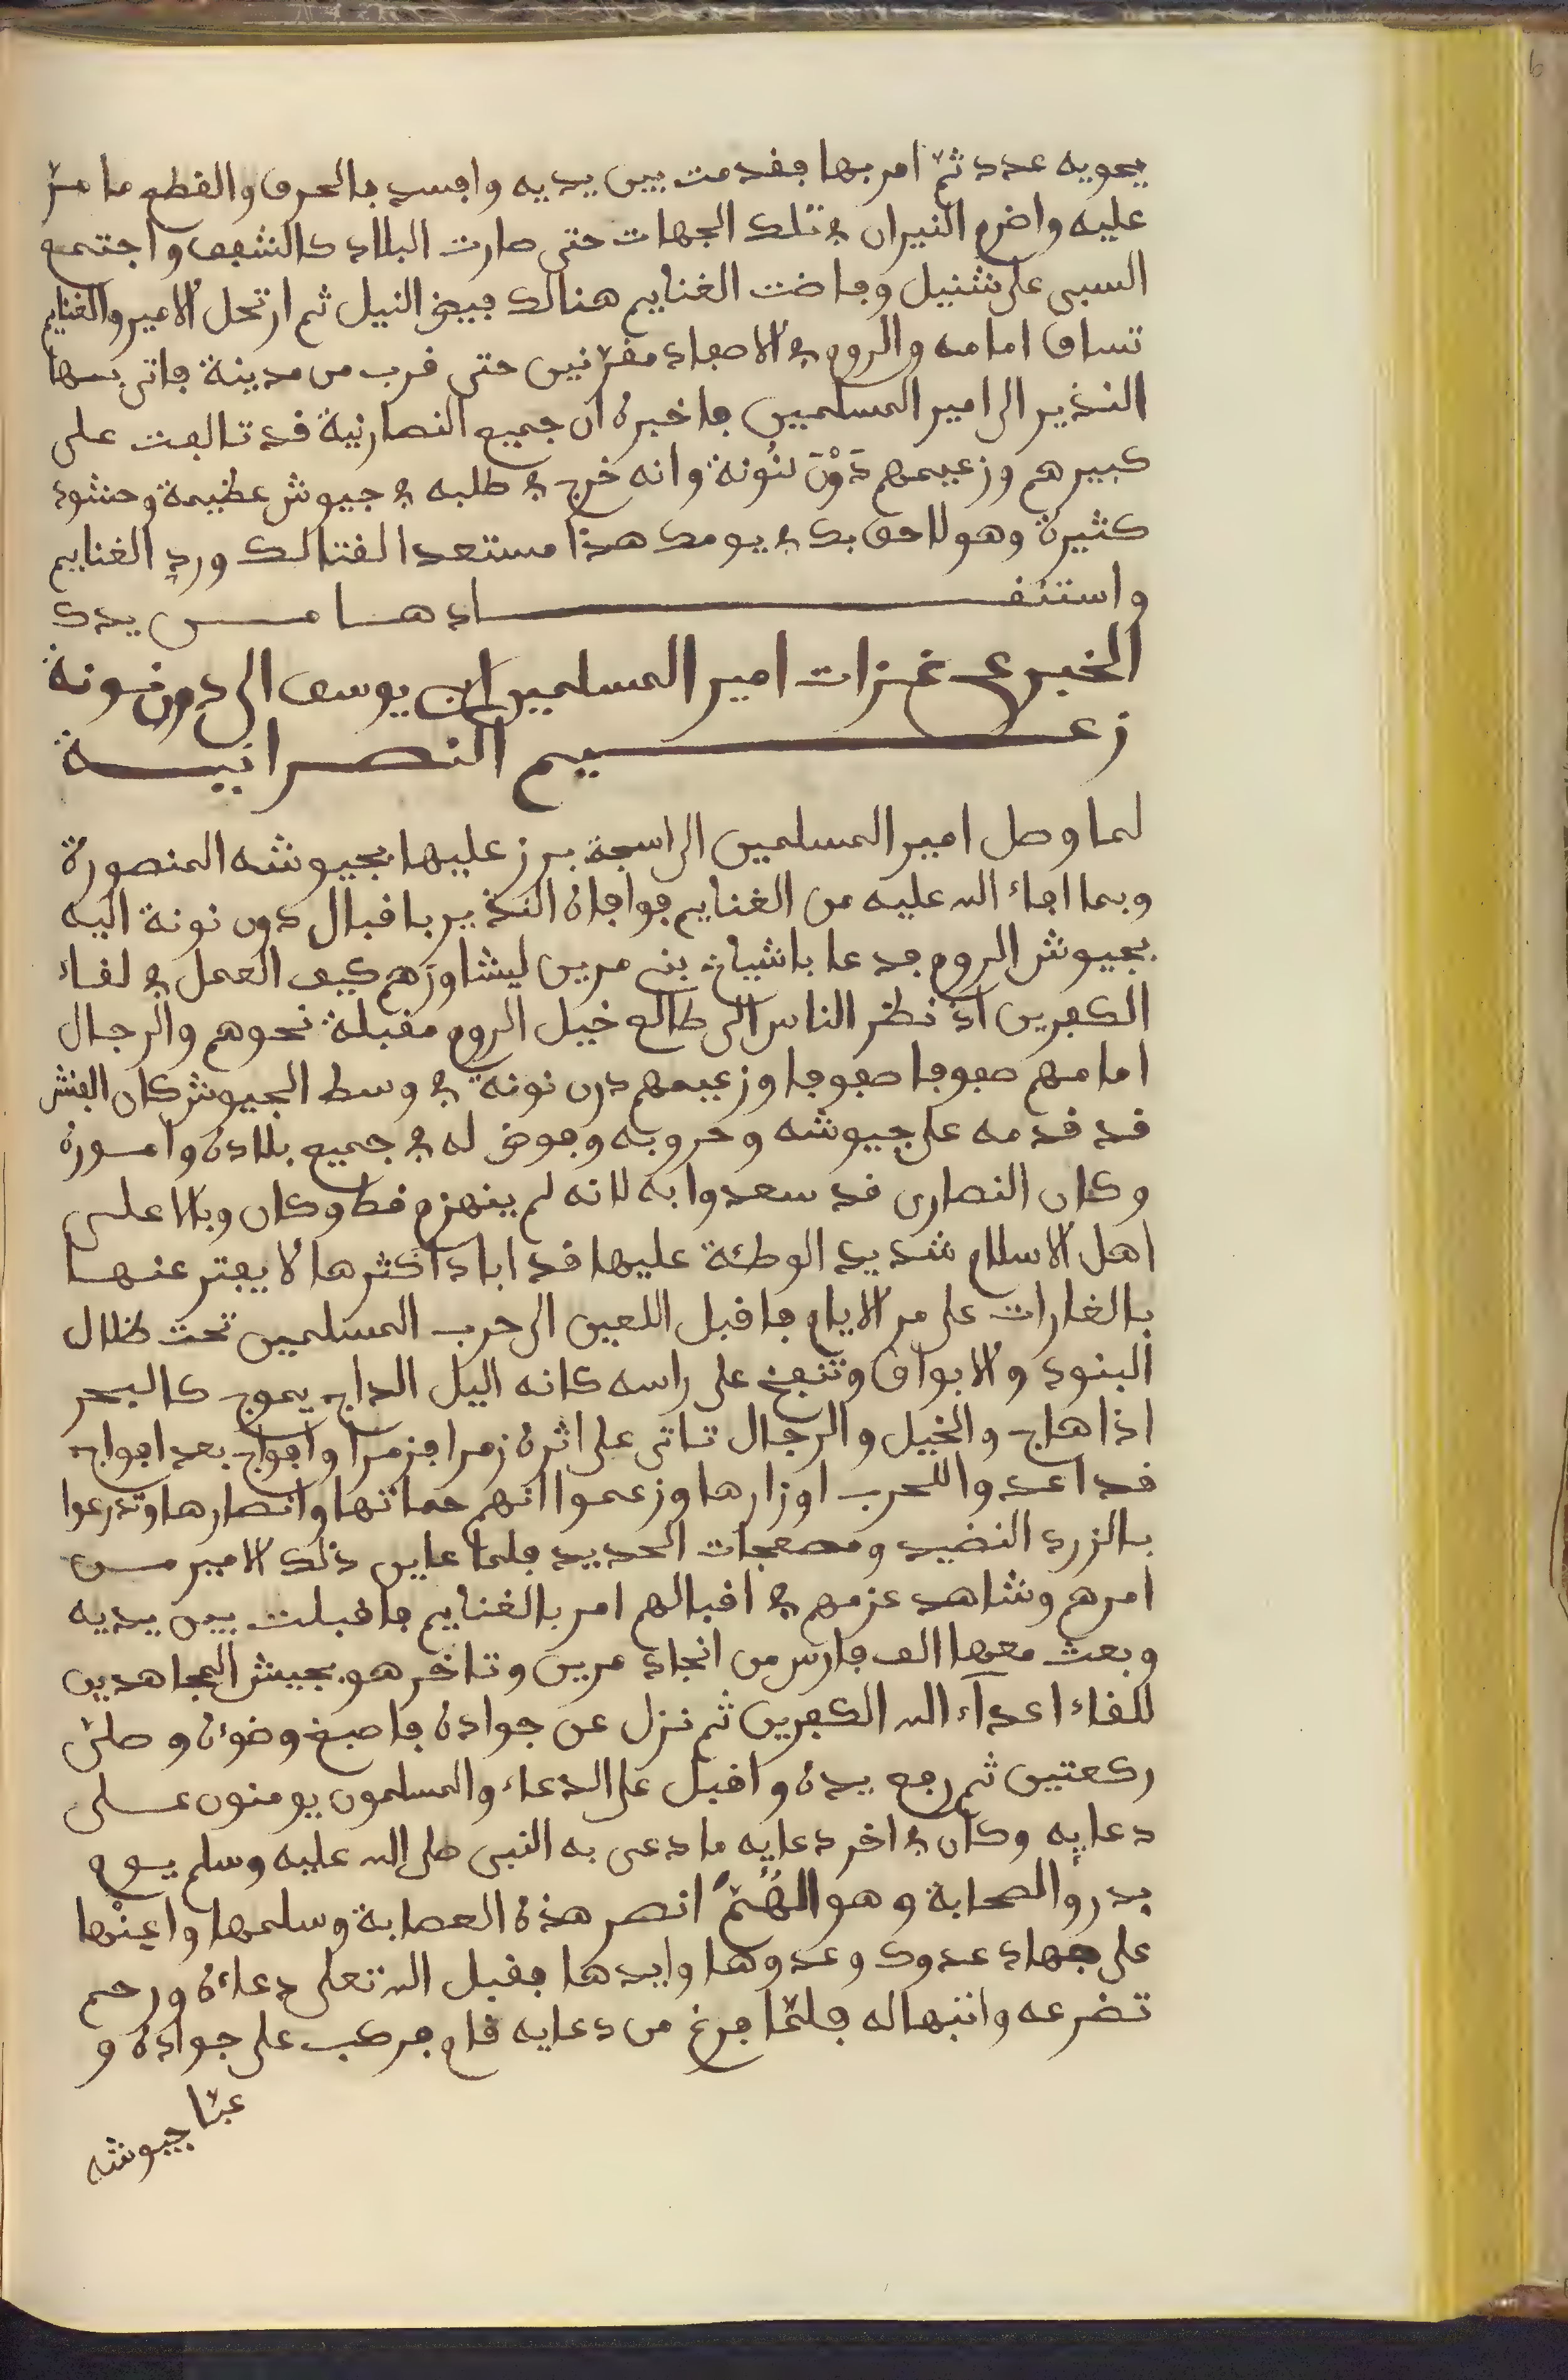 يحويه عدد ثمّ امر بها فقدمت بين يديه وافسد بالحرق والقطع ما مرّ
عليه واضرم النيران في تلك الجهات حتى صارت البلاد كالشفق واجتمع
السبي على شنيل وفاضت الغنايم هنالك فيض النيل ثم ارتحل الامير والغنايم
تساق امامه والروم في الاصفاد مقرّنين حتى قرب من مدينة فاتى بها
النذير الى امير المسلمين فاخبره ان جميع النصارنية قد تالفت على
كبيرهم وزعيمهم دَوْنَ نُونة وانه خرج في طلبه في جيوش عظيمة وحشود
كثيرة وهو لاحق بك في يومك هذا مستعدا لقتالك ورد الغنايم
واستنقادها من يدك
الخبر عن غزات امير المسلمين ابن يوسف الى دون نونة
زعيم النصرانية
لما وصل امير المسلمين الى اسجة برز عليها بجيوشه المنصورة
وبما افاء الله عليه من الغنايم فوافاه النذير باقبال دون نونة اليه
بجيوش الروم فدعا باشياخ بني مرين ليشاورهم كيف العمل في لقاء
الكفرين اذ نظر الناس الى طالع خيل الروم مقبلة نحوهم والرجال
امامهم صفوفا صفوفا وزعيمهم درن نونة في وسط الجيوش كان الفنش
قد قدمه على جيوشه وحروبه وفوض له في جميع بلاده واموره
وكان النصارى قد سعدوا به لانه لم ينهزم قط وكان وبالا على
اهل الاسلام شديد الوطئة عليها قد اباد اكثرها لا يفتر عنها
بالغارات على مر الايام فاقبل اللعين الى حرب المسلمين تحت ظلال
البنود والابواق وتنفخ على راسه كانه اليل الداج يموج كالبحر
اذا هاج والخيل والرجال تاتى على اثره زمرا فزمرا وافواج بعد افواج
قد اعدوا للحرب اوزارها وزعموا انهم حماتها وانصارها وتدرعوا
بالزرد النضيد ومصفحات الحديد فلما عاين ذلك الامير من
امرهم وشاهد عزمهم في اقبالهم امر بالغنايم فاقبلت بين يديه
وبعث معها الف فارس من انجاد مرين وتاخر هو بجيش المجاهدين
للقاء اعدآء الله الكفرين ثم نزل عن جواده فاصبغ وضوءه وصلى
ركعتين ثم رفع يده واقبل على الدعاء والمسلمون يومنون على
دعايه وكان في اخر دعايه ما دعى به النبي صلى الله عليه وسلم يوم
بدر والصحابة وهو اللهُمّ انصر هذه العصابة وسلمها واعِنْها
على جهاد عدوك وعدوها وايدها فقبل الله تعلى دعاءه ورحم
تضرعه وانبهاله فلمّا فرغ من دعايه قام فركب على جواده و
عبّا جيوشه